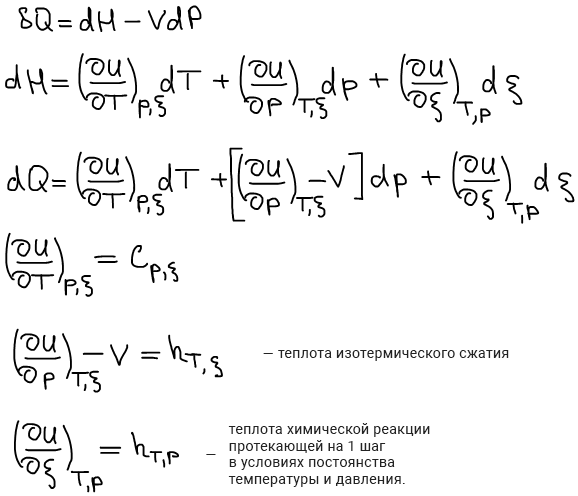 δQ = dH − VdP
dH = (∂U/∂T)_{P,ξ} dT + (∂U/∂P)_{T,ξ} dp + (∂U/∂ξ)_{T,P} dξ
dQ = (∂U/∂T)_{P,ξ} dT + [(∂U/∂p)_{T,ξ} − V] dp + (∂U/∂ξ)_{T,P} dξ
(∂U/∂T)_{P,ξ} = C_{P,ξ}
(∂U/∂p)_{T,ξ} − V = h_{T,ξ} — теплота изотермического сжатия
(∂U/∂ξ)_{T,P} = h_{T,P} — теплота химической реакции
протекающей на 1 шаг
в условиях постоянства
температуры и давления.